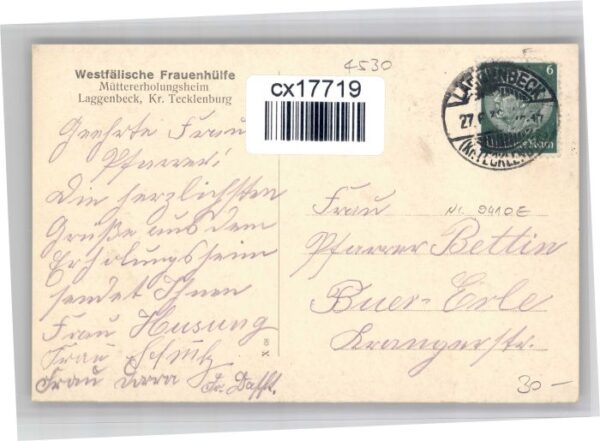 4530
Westfälische Frauenhülfe
Müttererholungsheim
Laggenbeck, Kr. Tecklenburg
cx17719
6
LAGGENBECK
27.
(Kr. TECKLENB
Geehrte Frau
Pfarrer!
Die herzlichsten
Grüße aus dem
Erholungsheim
sendet Ihnen
Frau Husung
Frau Schulz
Frau
Frau Nr. 9410E
Pfarrer Bettin
Buer-Erle
Krangerstr.
X
30-